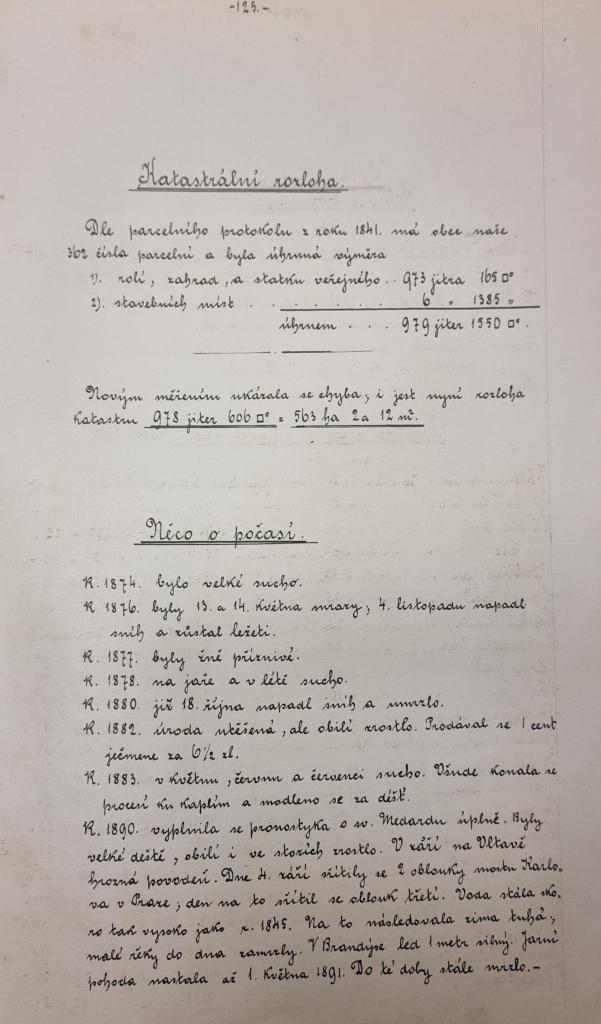 -125.-
Katastrální rozloha.
Dle parcelního protokolu z roku 1841. má obec naše
362 čísla parcelní a byla úhrnná výměra
1). rolí, zahrad, a statku veřejného.. 973 jitra 165 □°
2). stavebních míst . . . . . . . 6 „ 1385 „
úhrnem . . . 979 jiter 1550 □°.
Novým měřením ukázala se chyba, i jest nyní rozloha
katastru 978 jiter 606 □° = 563 ha 2a 12 m².
Něco o počasí.
R. 1874. bylo velké sucho.
R. 1876. byly 13. a 14. května mrazy, 4. listopadu napadl
sníh a zůstal ležeti.
R. 1877. byly žně příznivé.
R. 1878. na jaře a v létě sucho.
R. 1880. již 18. října napadl sníh a umrzlo.
R. 1882. úroda utěšená, ale obilí zrostlo. Prodával se 1 cent
ječmene za 6½ zl.
R. 1883. v květnu, červnu a červenci sucho. Všude konala se
procesí ku kaplím a modleno se za déšť.
R. 1890. vyplnila se pronostyka o sv. Medardu úplně. Byly
velké deště, obilí i ve stozích zrostlo. V září na Vltavě
hrozná povodeň. Dne 4. září sřítily se 2 oblouky mostu Karlo-
va v Praze; den na to sřítil se oblouk třetí. Voda stála sko-
ro tak vysoko jako r. 1845. Na to následovala zima tuhá,
malé řeky do dna zamrzly. V Brandýse led 1 metr silný. Jarní
pohoda nastala až 1. května 1891. Do té doby stále mrzlo.-